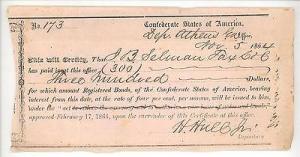 No. 173 Confederate States of America.
Dep Athens Ga
Nov 5 1864
This will Certify, That J. B. Selman Tax Col
has paid in at this office (300)
Three Hundred Dollars,
for which amount Registered Bonds, of the Confederate States of America, bearing
interest from this date, at the rate of four per cent. per annum, will be issued to him,
under the "act
approved February 17, 1864, upon the surrender of this Certificate at this office.
Depositary